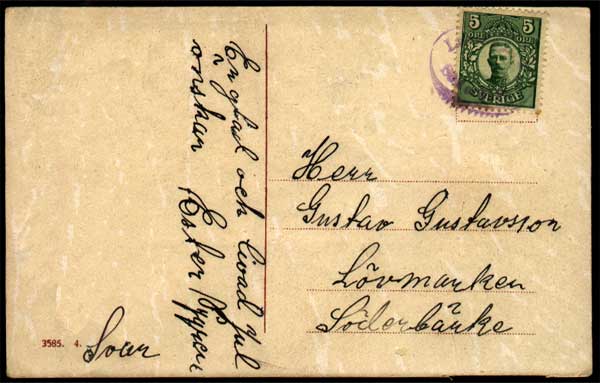 En glad och livad Jul
önskar Ester
Svar
5 5
ÖRE ÖRE
SVERIGE
Herr
Gustav Gustavsson
Lövmarken
Söderbärke
3585. 4.